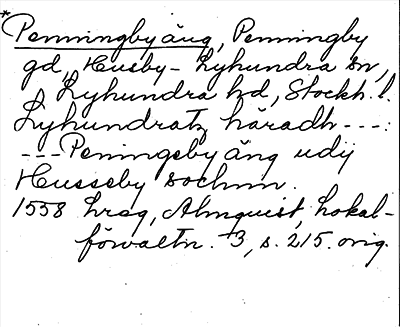 * Penningby äng, Penningby
gd, Husby-Lyhundra sn,
Lyhundra hd, Stockh. l.
Lyhundratz häradh ---:
--- Peningsby äng udij
Husseby sochnn.
1558 hreg, Almquist, Lokal-
förvaltn. 3, s. 215. orig.